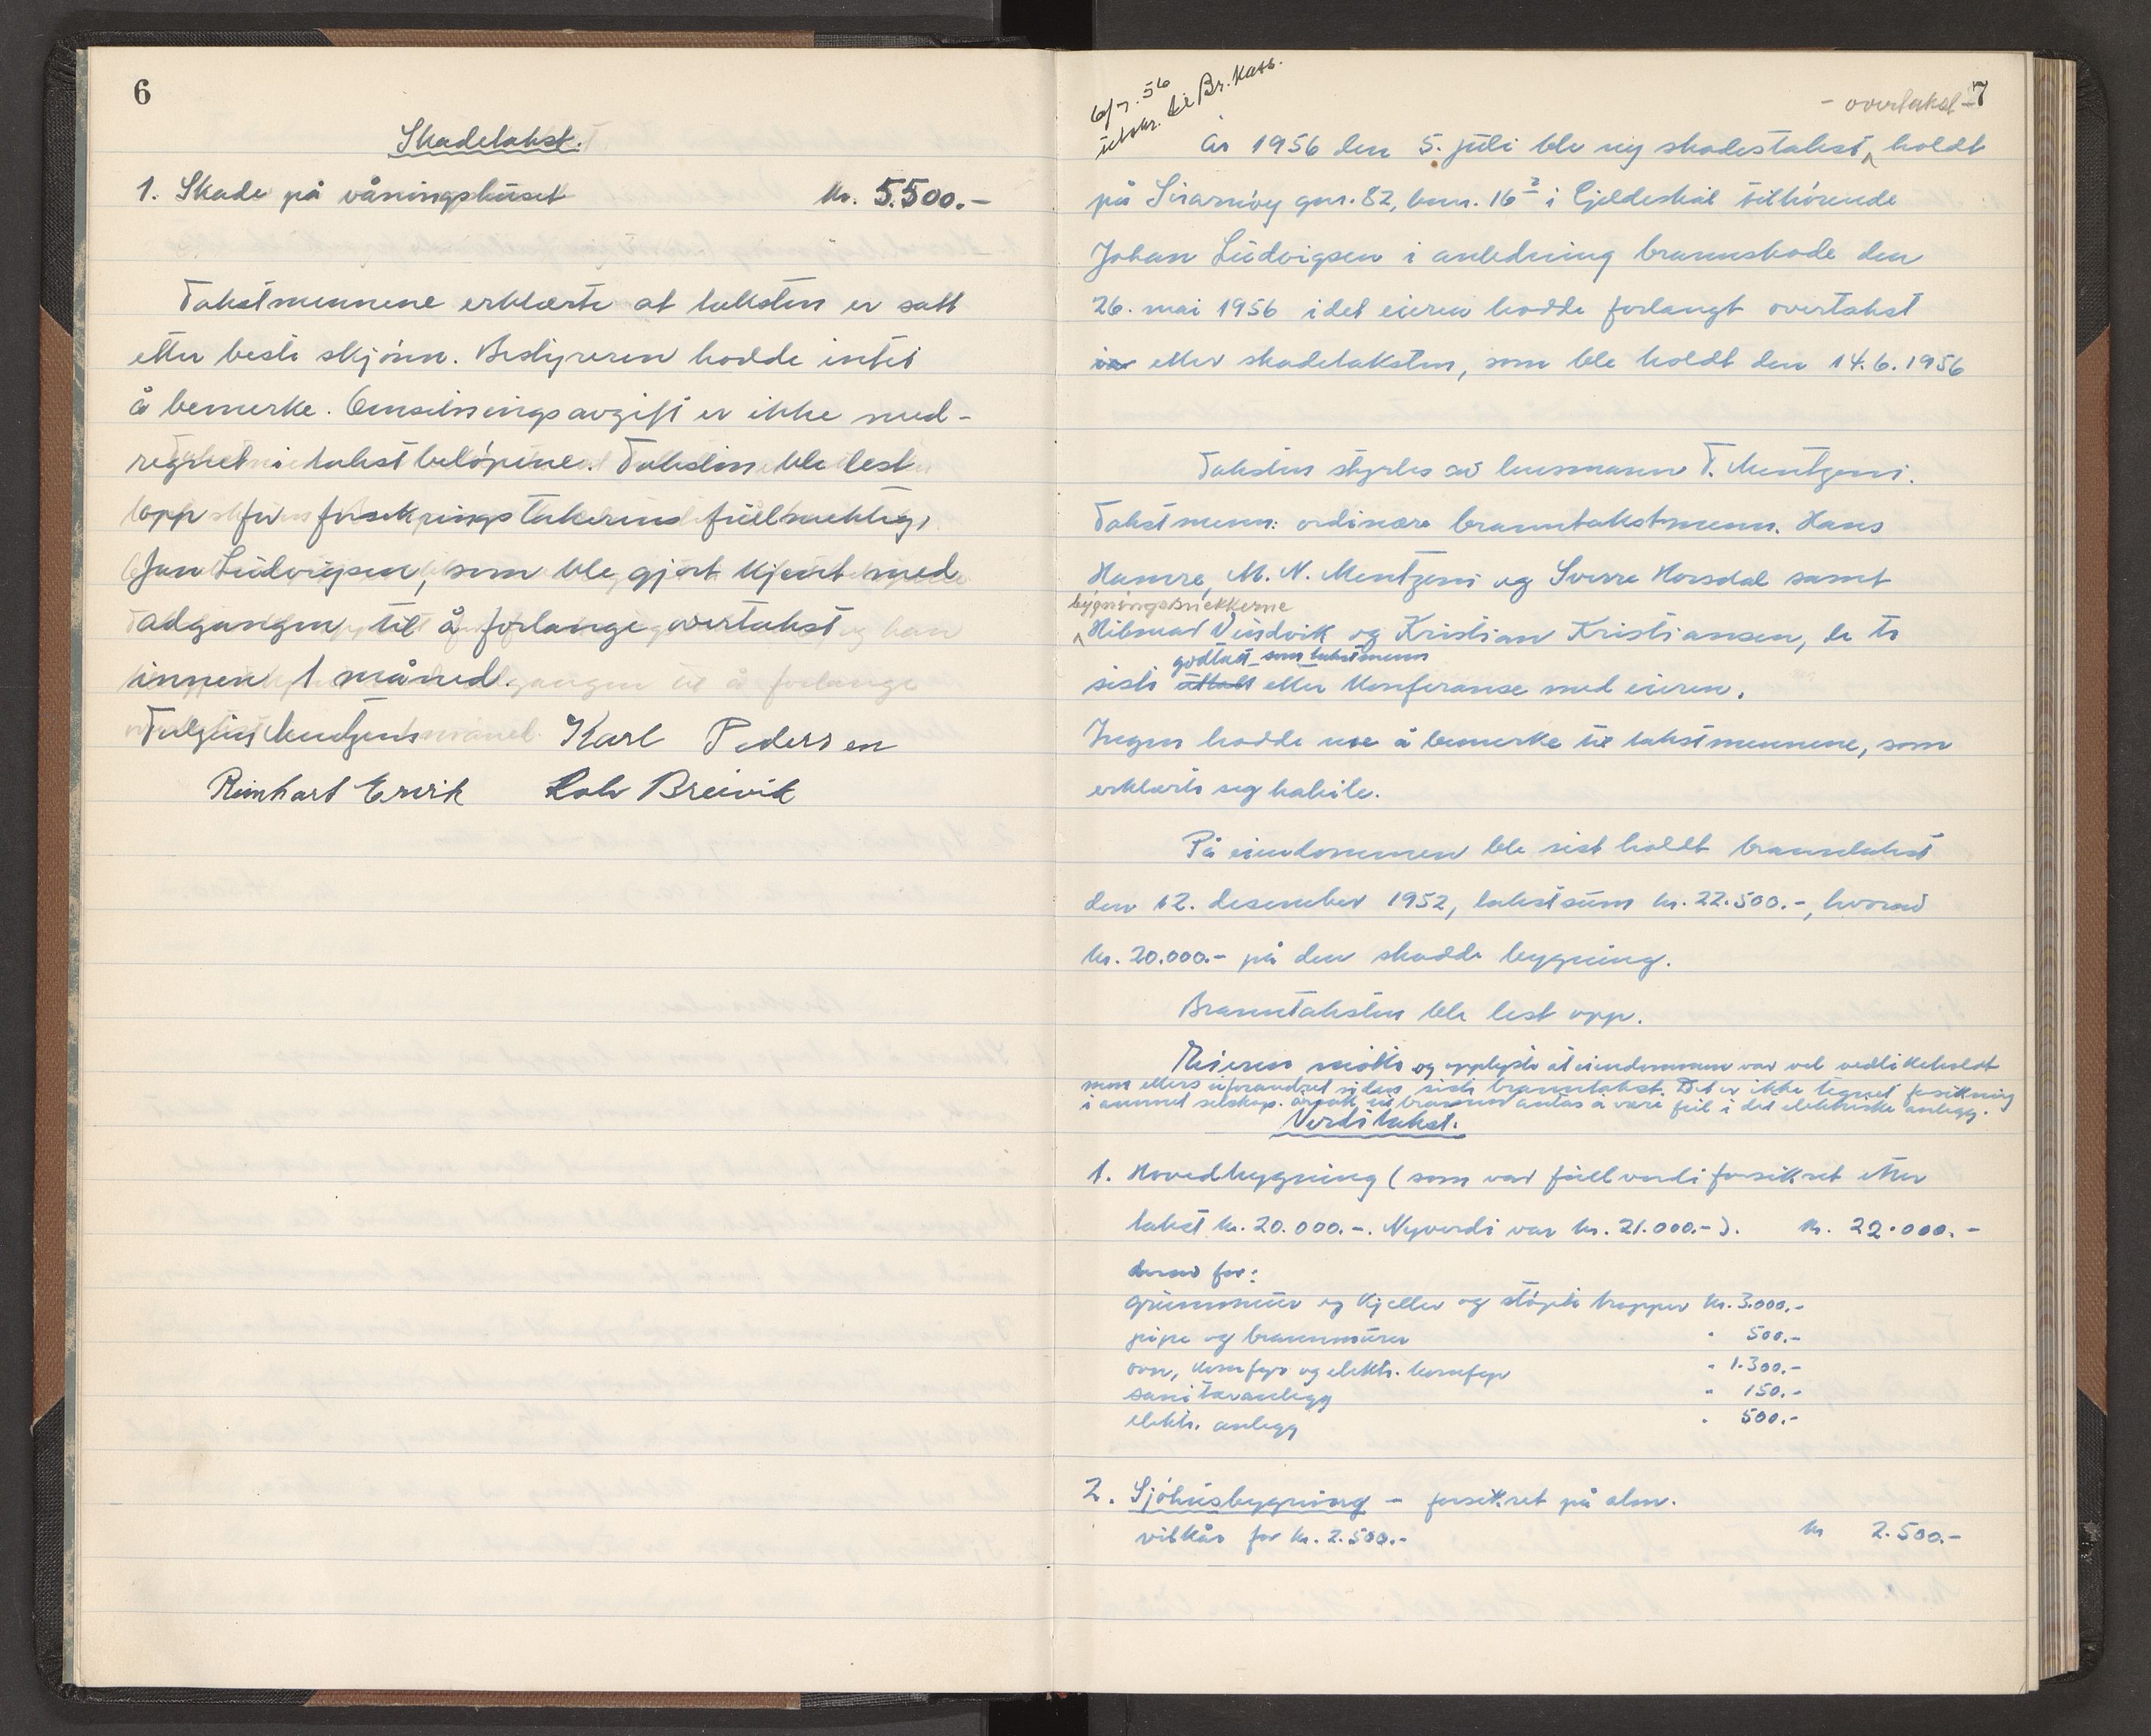 6
Skadetakst.
1. Skade på våningshuset kr. 5.500.-
Takstmennene erklærte at taksten er satt
etter beste skjönn. Bestyreren hadde intet
å bemerke. Omsetningsavgift er ikke med-
regnet i takstbelöpene. Taksten ble lest
opp for forsikringstakerens fullmektig,
Jan Ludvigsen, som ble gjort kjent med
adgangen til å forlange overtakst
innen 1 måned.
Mentzoni Karl Pedersen
Reinhart Breivik
6/7. 56
utskr. til Br. kass.
7
- overtakst -
År 1956 den 5. juli ble ny skadestakst holdt
på gnr. 82, bnr. 16 i Gjeldeskål tilhörende
Johan Ludvigsen i anledning brannskade den
26. mai 1956 idet eieren hadde forlangt overtakst
etter skadetaksten, som ble holdt den 14.6.1956
Taksten styrtes av lensmann T. Mentzoni.
Takstmenn: ordinære branntakstmenn. Hans
Hamre, M. N. Mentzoni og Sverre Horsdal samt
bygningssnekkerne
Hilmar Vindvik og Kristian Kristiansen, de to
godtatt som takstmenn
siste uttatt etter konferanse med eieren.
Ingen hadde noe å bemerke til takstmennene, som
erklærte seg habile.
På eiendommen ble sist holdt branntakst
den 12. desember 1952, takstsum kr. 22.500.-, hvorav
kr. 20.000.- på den skadde bygning.
Branntaksten ble lest opp.
Eieren mötte og opplyste at eiendommen var vel vedlikeholdt
men ellers uforandret siden siste branntakst. Det er ikke tegnet forsikring
i annet selskap. årsak til brannen antas å være feil i det elektriske anlegg.
Verditakst.
1. Hovedbygning (som var fullverdiforsikret etter
takst kr. 20.000.-. Nyverdi var kr. 21.000.-). kr. 22.000.-
derav for:
grunnmur og kjeller og stöpte trapper kr. 3.000.-
pipe og brannmurer " 500.-
ovn, komfyr og elektr. komfyr " 1.300.-
sanitæranlegg " 150.-
elektr. anlegg " 500.-
2. Sjöhusbygning - forsikret på alm.
vilkår for kr. 2.500.- kr 2.500.-